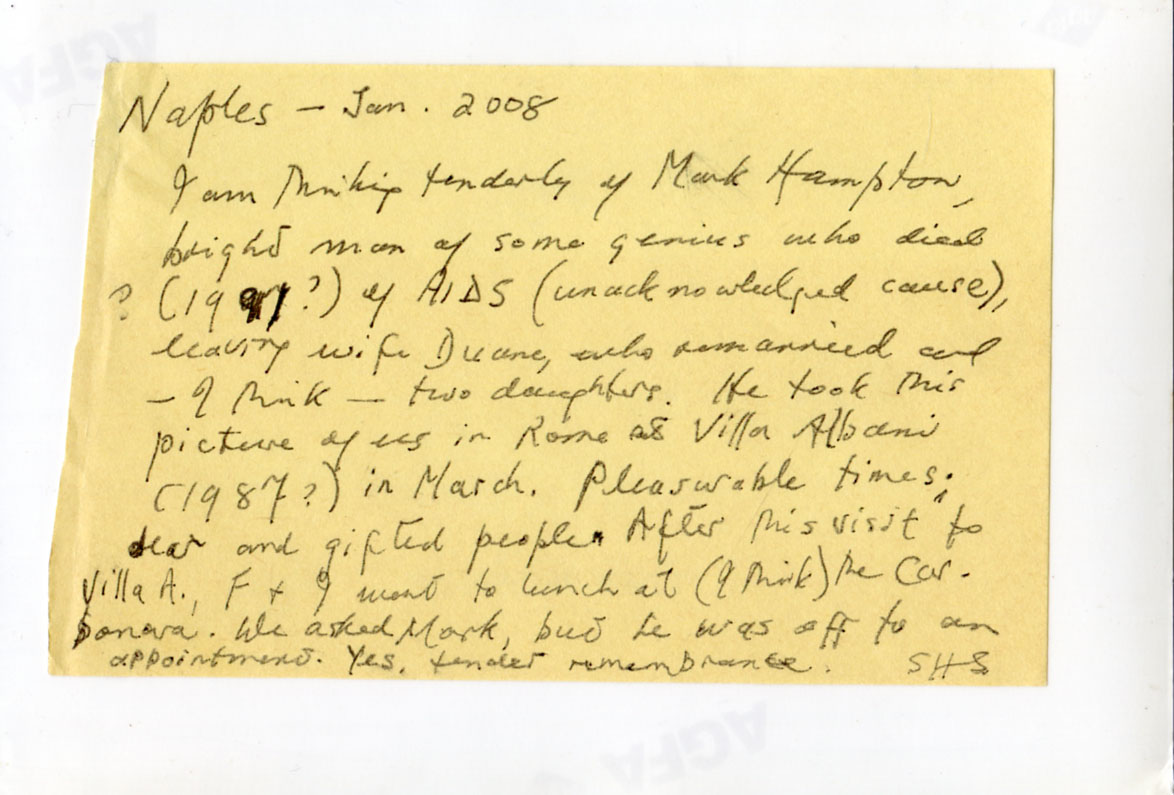 AGFA
Naples – Jan. 2008
I am thinking tenderly of Mark Hampton,
bright man of some genius who died
? (1991?) of AIDS (unacknowledged cause),
leaving wife Duane, who remarried and
– I think – two daughters. He took this
picture of us in Rome at Villa Albani
(1987?) in March. Pleasurable times;
dear and gifted people. After this visit to
Villa A., F + I went to lunch at (I think) the Car-
bonara. We asked Mark, but he was off to an
appointment. Yes, tender remembrance. SHS
AGFA